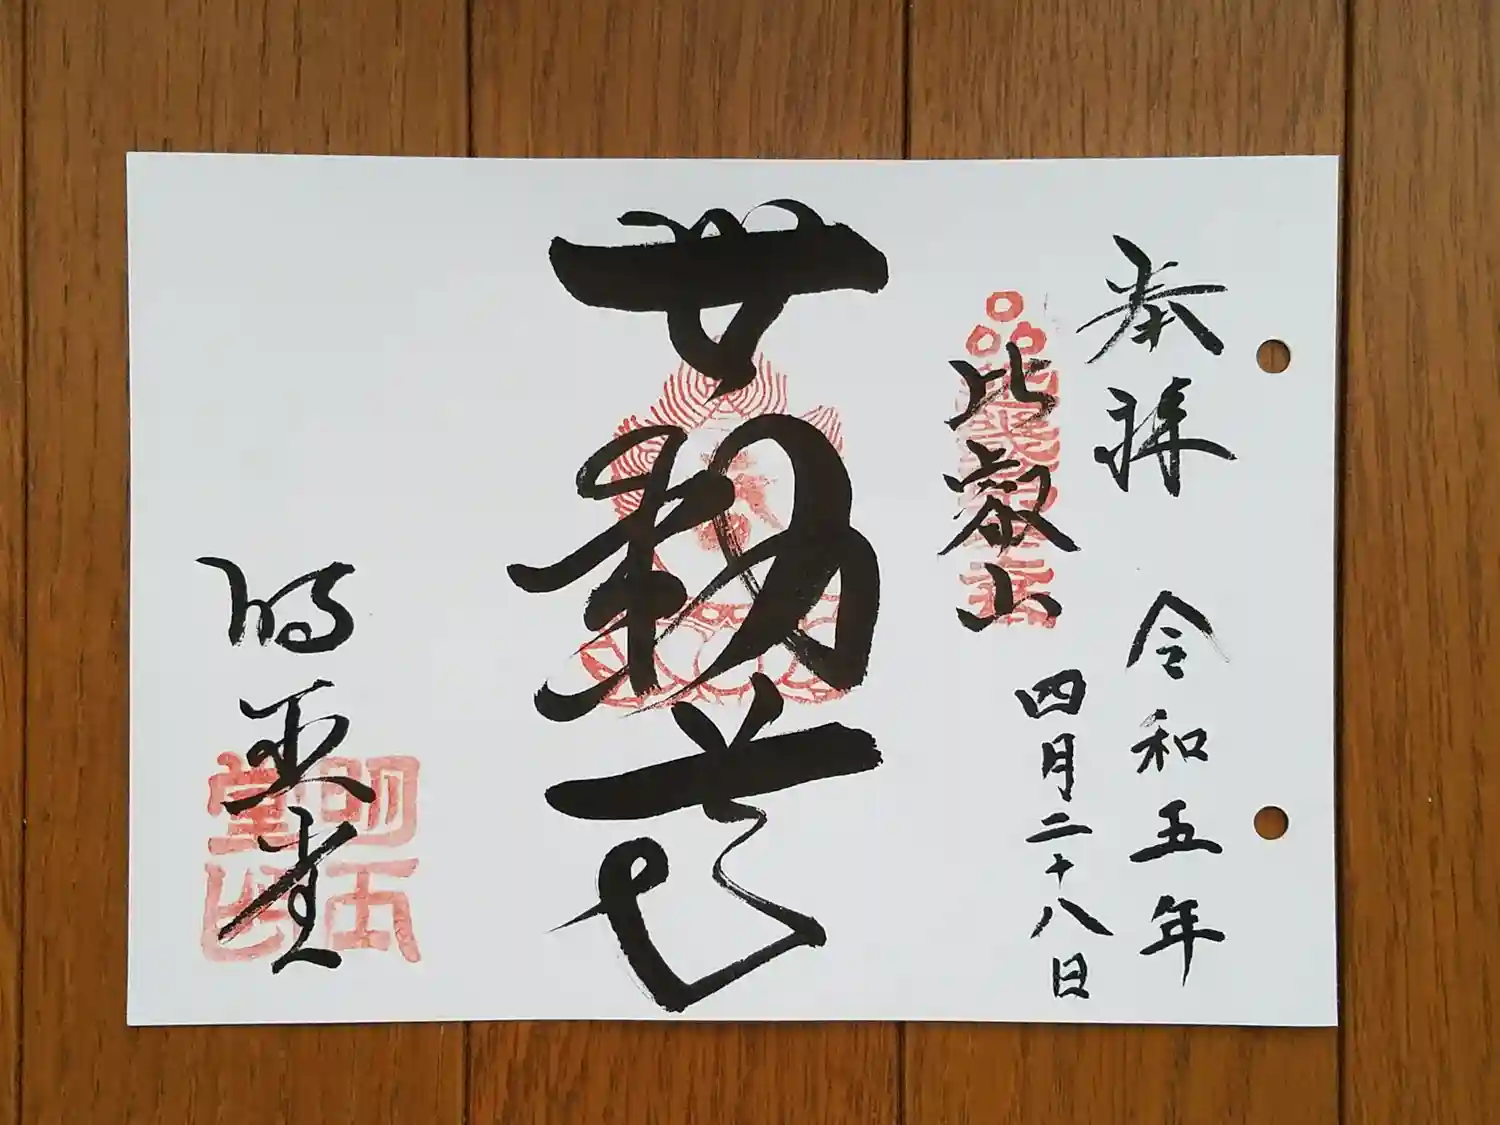 奉拝 令和五年
四月二十八日
比叡山
無動尊
明王堂
明王
堂印